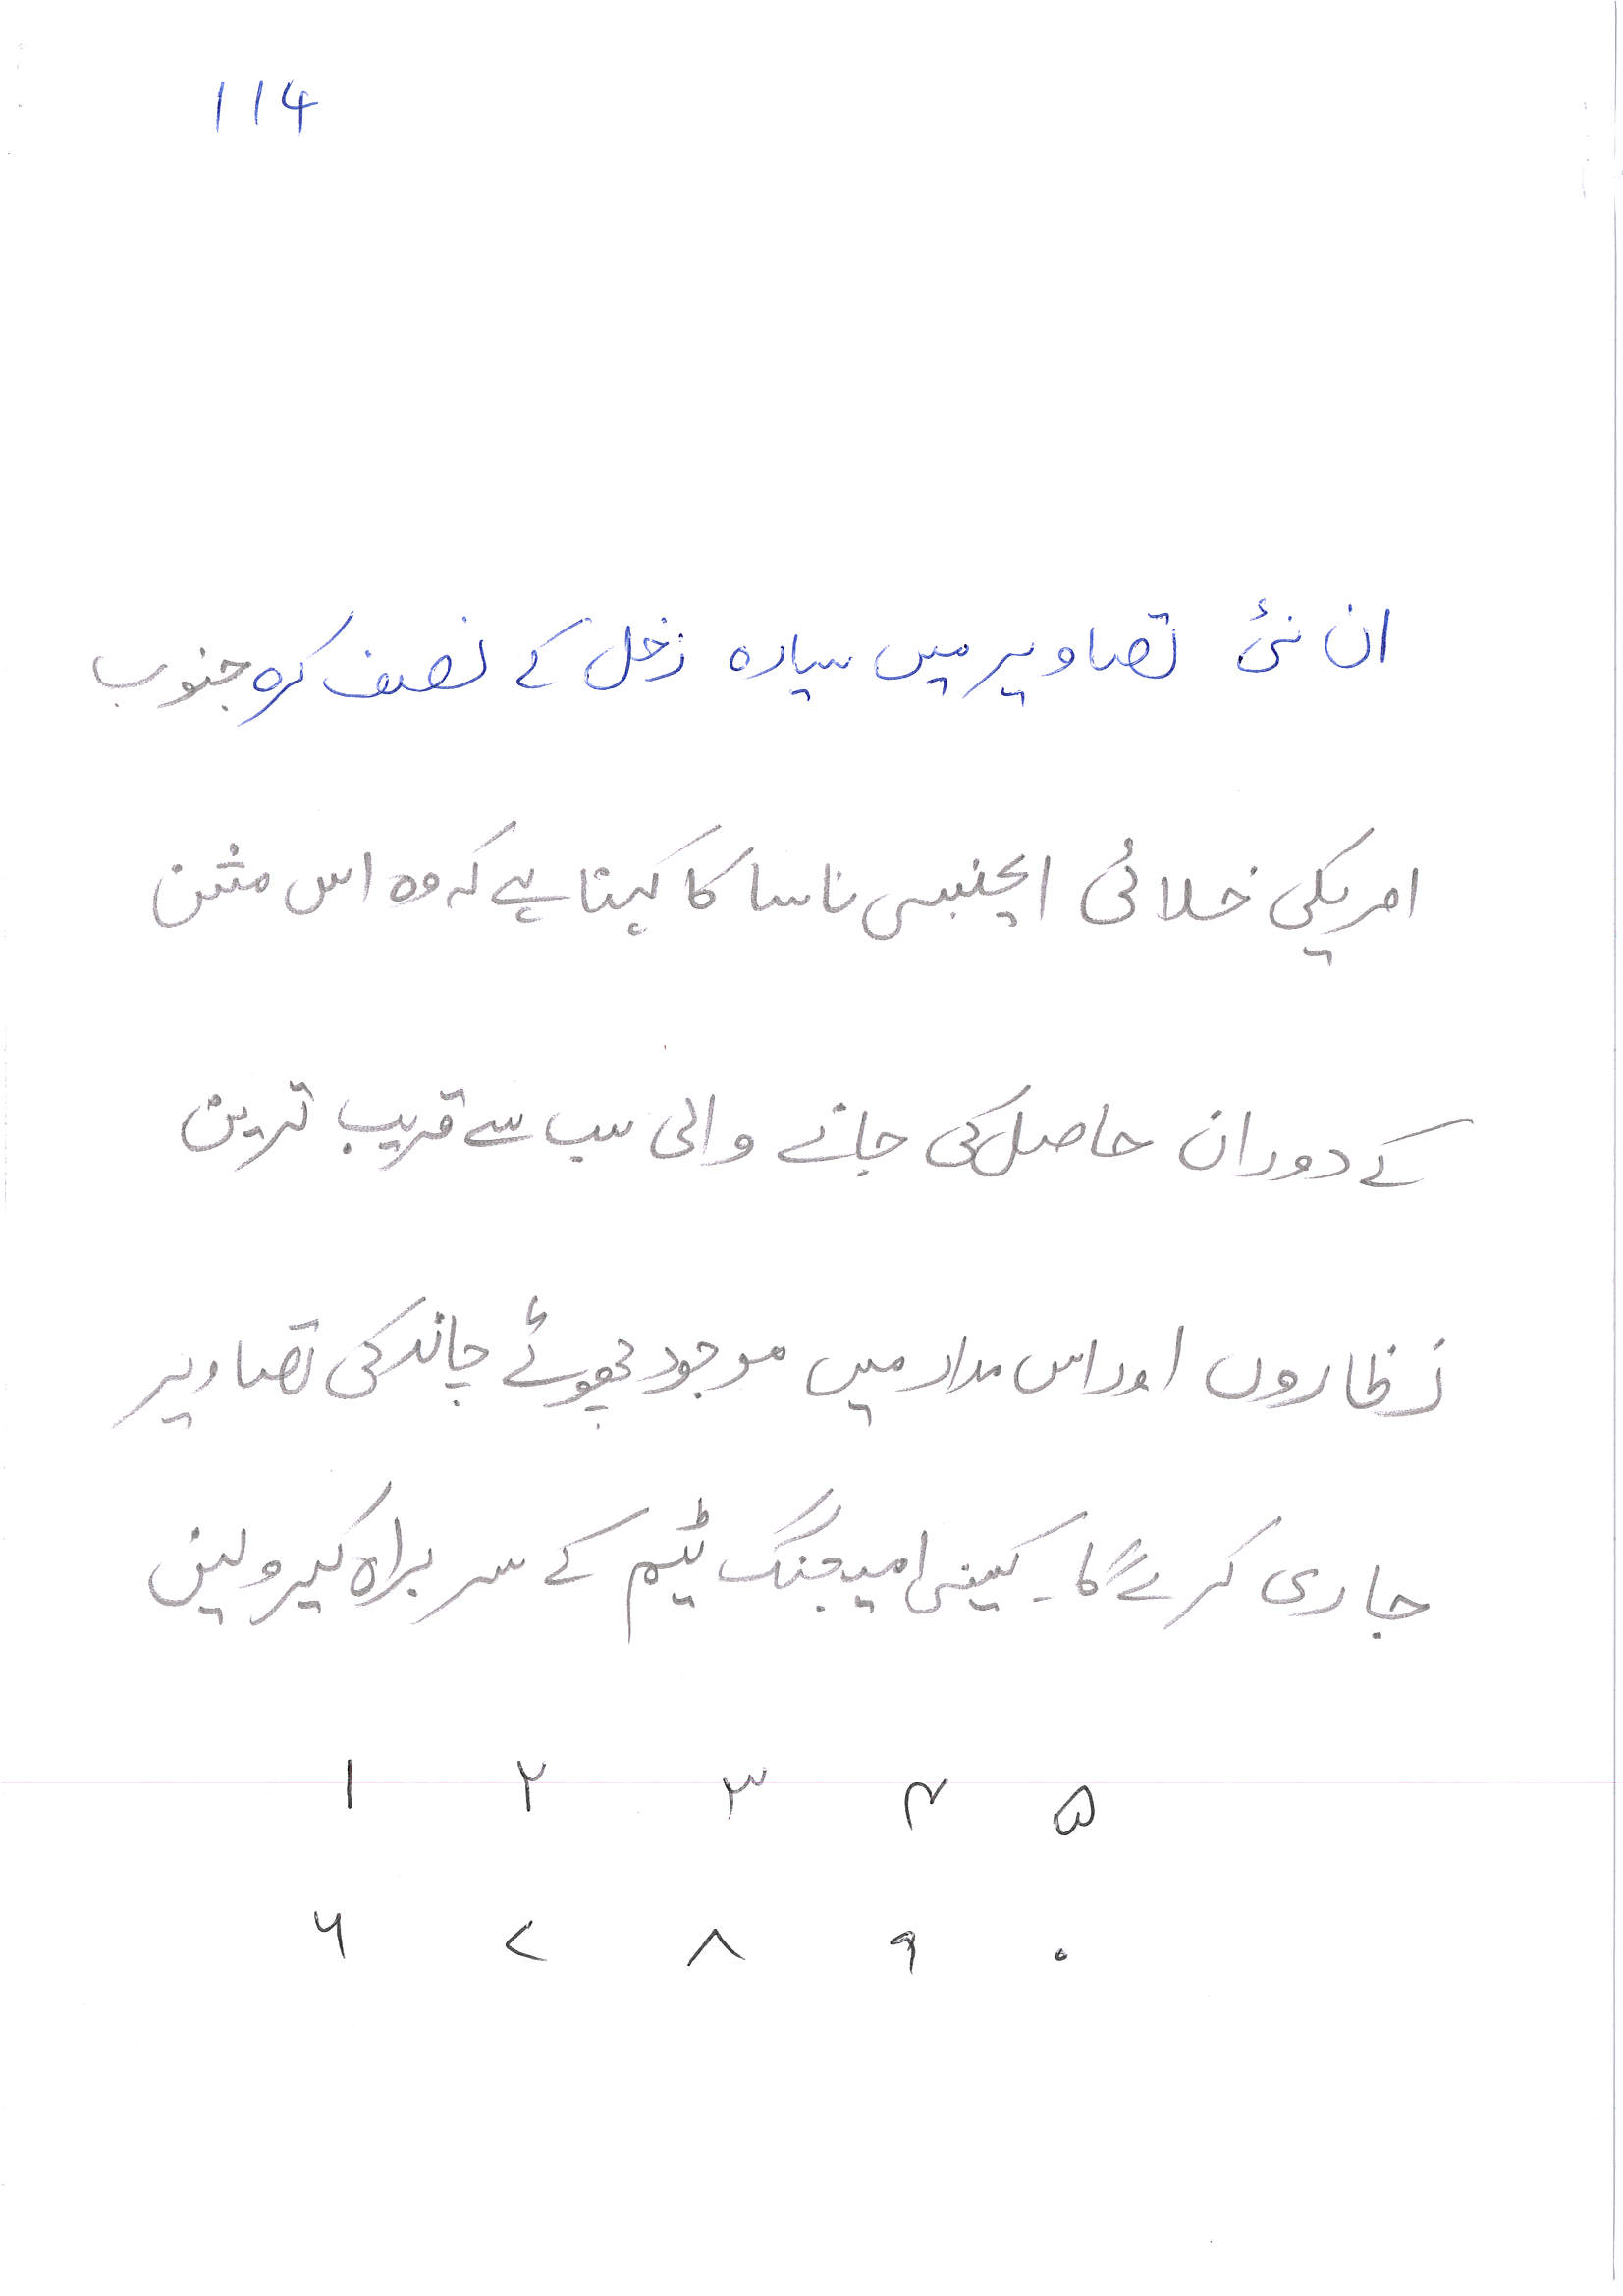 114
ان نئی تصاویر میں سیارہ زحل کے نصف کرہ جنوب
امریکی خلائی ایجنسی ناسا کا کہنا ہے کہ وہ اس مشن
کے دوران حاصل کی جانے والی سب سے قریب ترین
نظاروں اور اس مدار میں موجود چھوٹے چاند کی تصاویر
جاری کرے گا۔ کیسنی امیجنگ ٹیم کے سربراہ کیرولین
۱ ۲ ۳ ۴ ۵
۶ ۷ ۸ ۹ ۰